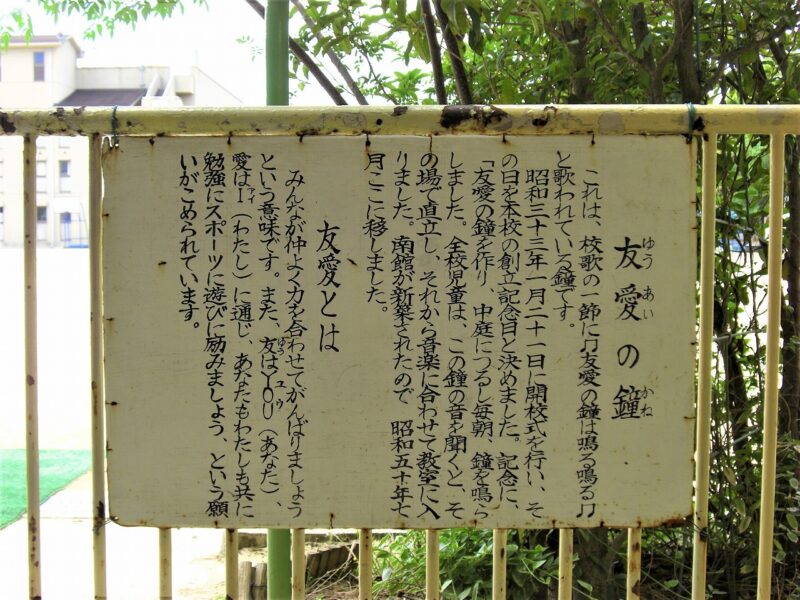 友愛の鐘
ゆうあい かね
これは、校歌の一節に♫友愛の鐘は鳴る鳴る♫
と歌われている鐘です。
昭和三十三年一月二十一日に開校式を行い、そ
の日を本校の創立記念日と決めました。記念に、
「友愛の鐘を作り、中庭につるし毎朝、鐘を鳴ら
しました。全校児童は、この鐘の音を聞くと、そ
の場で直立し、それから音楽に合わせて教室に入
りました。南館が新築されたので 昭和五十年七
月ここに移しました。
友愛とは
みんなが仲よく力を合わせてがんばりましょう
という意味です。また、友はYOU（あなた）、
ゆう ユウ
愛はI（わたし）に通じ、あなたもわたしも共に
アイ
勉強にスポーツに遊びに励みましょう、という願
いがこめられています。